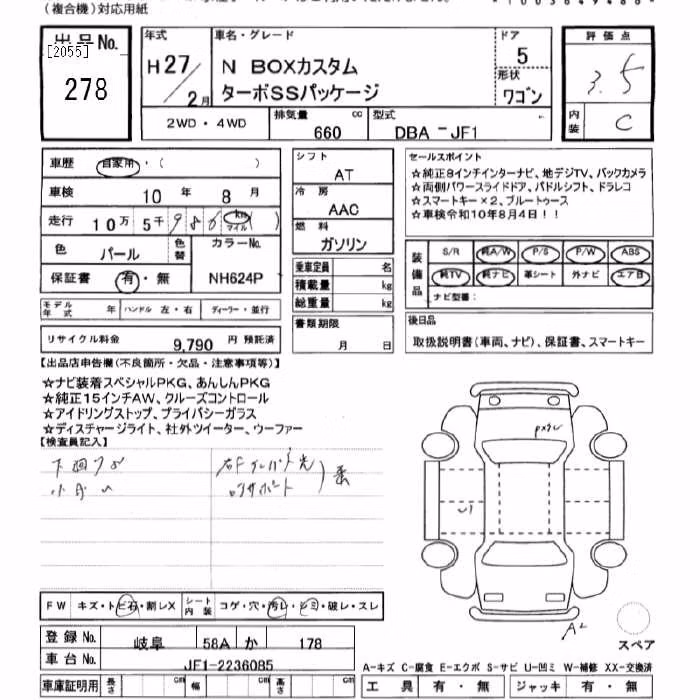 (複合機)対応用紙
出品No.
[2055]
278
年式
H27/2月
車名・グレード
N BOXカスタム
ターボSSパッケージ
ドア
5
形状
ワゴン
2WD・4WD
排気量 660 cc
型式 DBA-JF1
評価点
3.5
内装 C
車歴 自家用・( )
車検 10年 8月
走行 10万 5千 986 km マイル ( )
色 パール 色替 カラーNo. NH624P
保証書 有・無
シフト
AT
冷房
AAC
燃料
ガソリン
乗車定員 名
積載量 kg
総重量 kg
書類期限
月 日
セールスポイント
☆純正8インチインターナビ、地デジTV、バックカメラ
☆両側パワースライドドア、パドルシフト、ドラレコ
☆スマートキー×2、ブルートゥース
☆車検令和10年8月4日!!
装備品
S/R 純A/W P/S P/W ABS
純TV 純ナビ 革シート 外ナビ エアB
ナビ型番:
モデル年式 年 ハンドル 左・右 ディーラー・並行
リサイクル料金 9,790 円 預託済
後日品
取扱説明書(車両、ナビ)、保証書、スマートキー
【出品店申告欄(不良箇所・欠品・注意事項等)】
☆ナビ装着スペシャルPKG、あんしんPKG
☆純正15インチAW、クルーズコントロール
☆アイドリングストップ、プライバシーガラス
☆ディスチャージライト、社外ツイーター、ウーファー
【検査員記入】
FW キズ・トビ石・割レX
シート内装 コゲ・穴・汚レ・シミ・破レ・スレ
登録No. 岐阜 58A か 178
車台No. JF1-2236085
A2
スペア
A-キズ C-腐食 E-エクボ S-サビ U-凹ミ W-補修 XX-交換済
車庫証明用 長さ cm 幅 cm 高さ cm
工具 有・無 ジャッキ 有・無